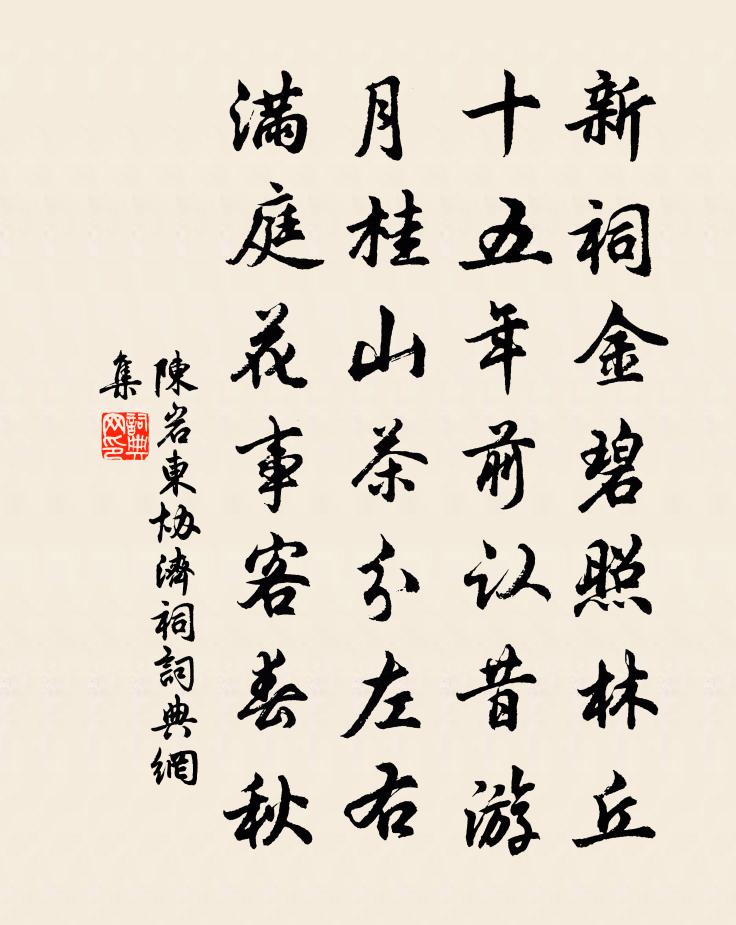 新祠金碧照林丘
十五年前认昔游
月桂山茶分左右
满庭花事客春秋
陳岩東协濟祠詞典網
集
詞典网印